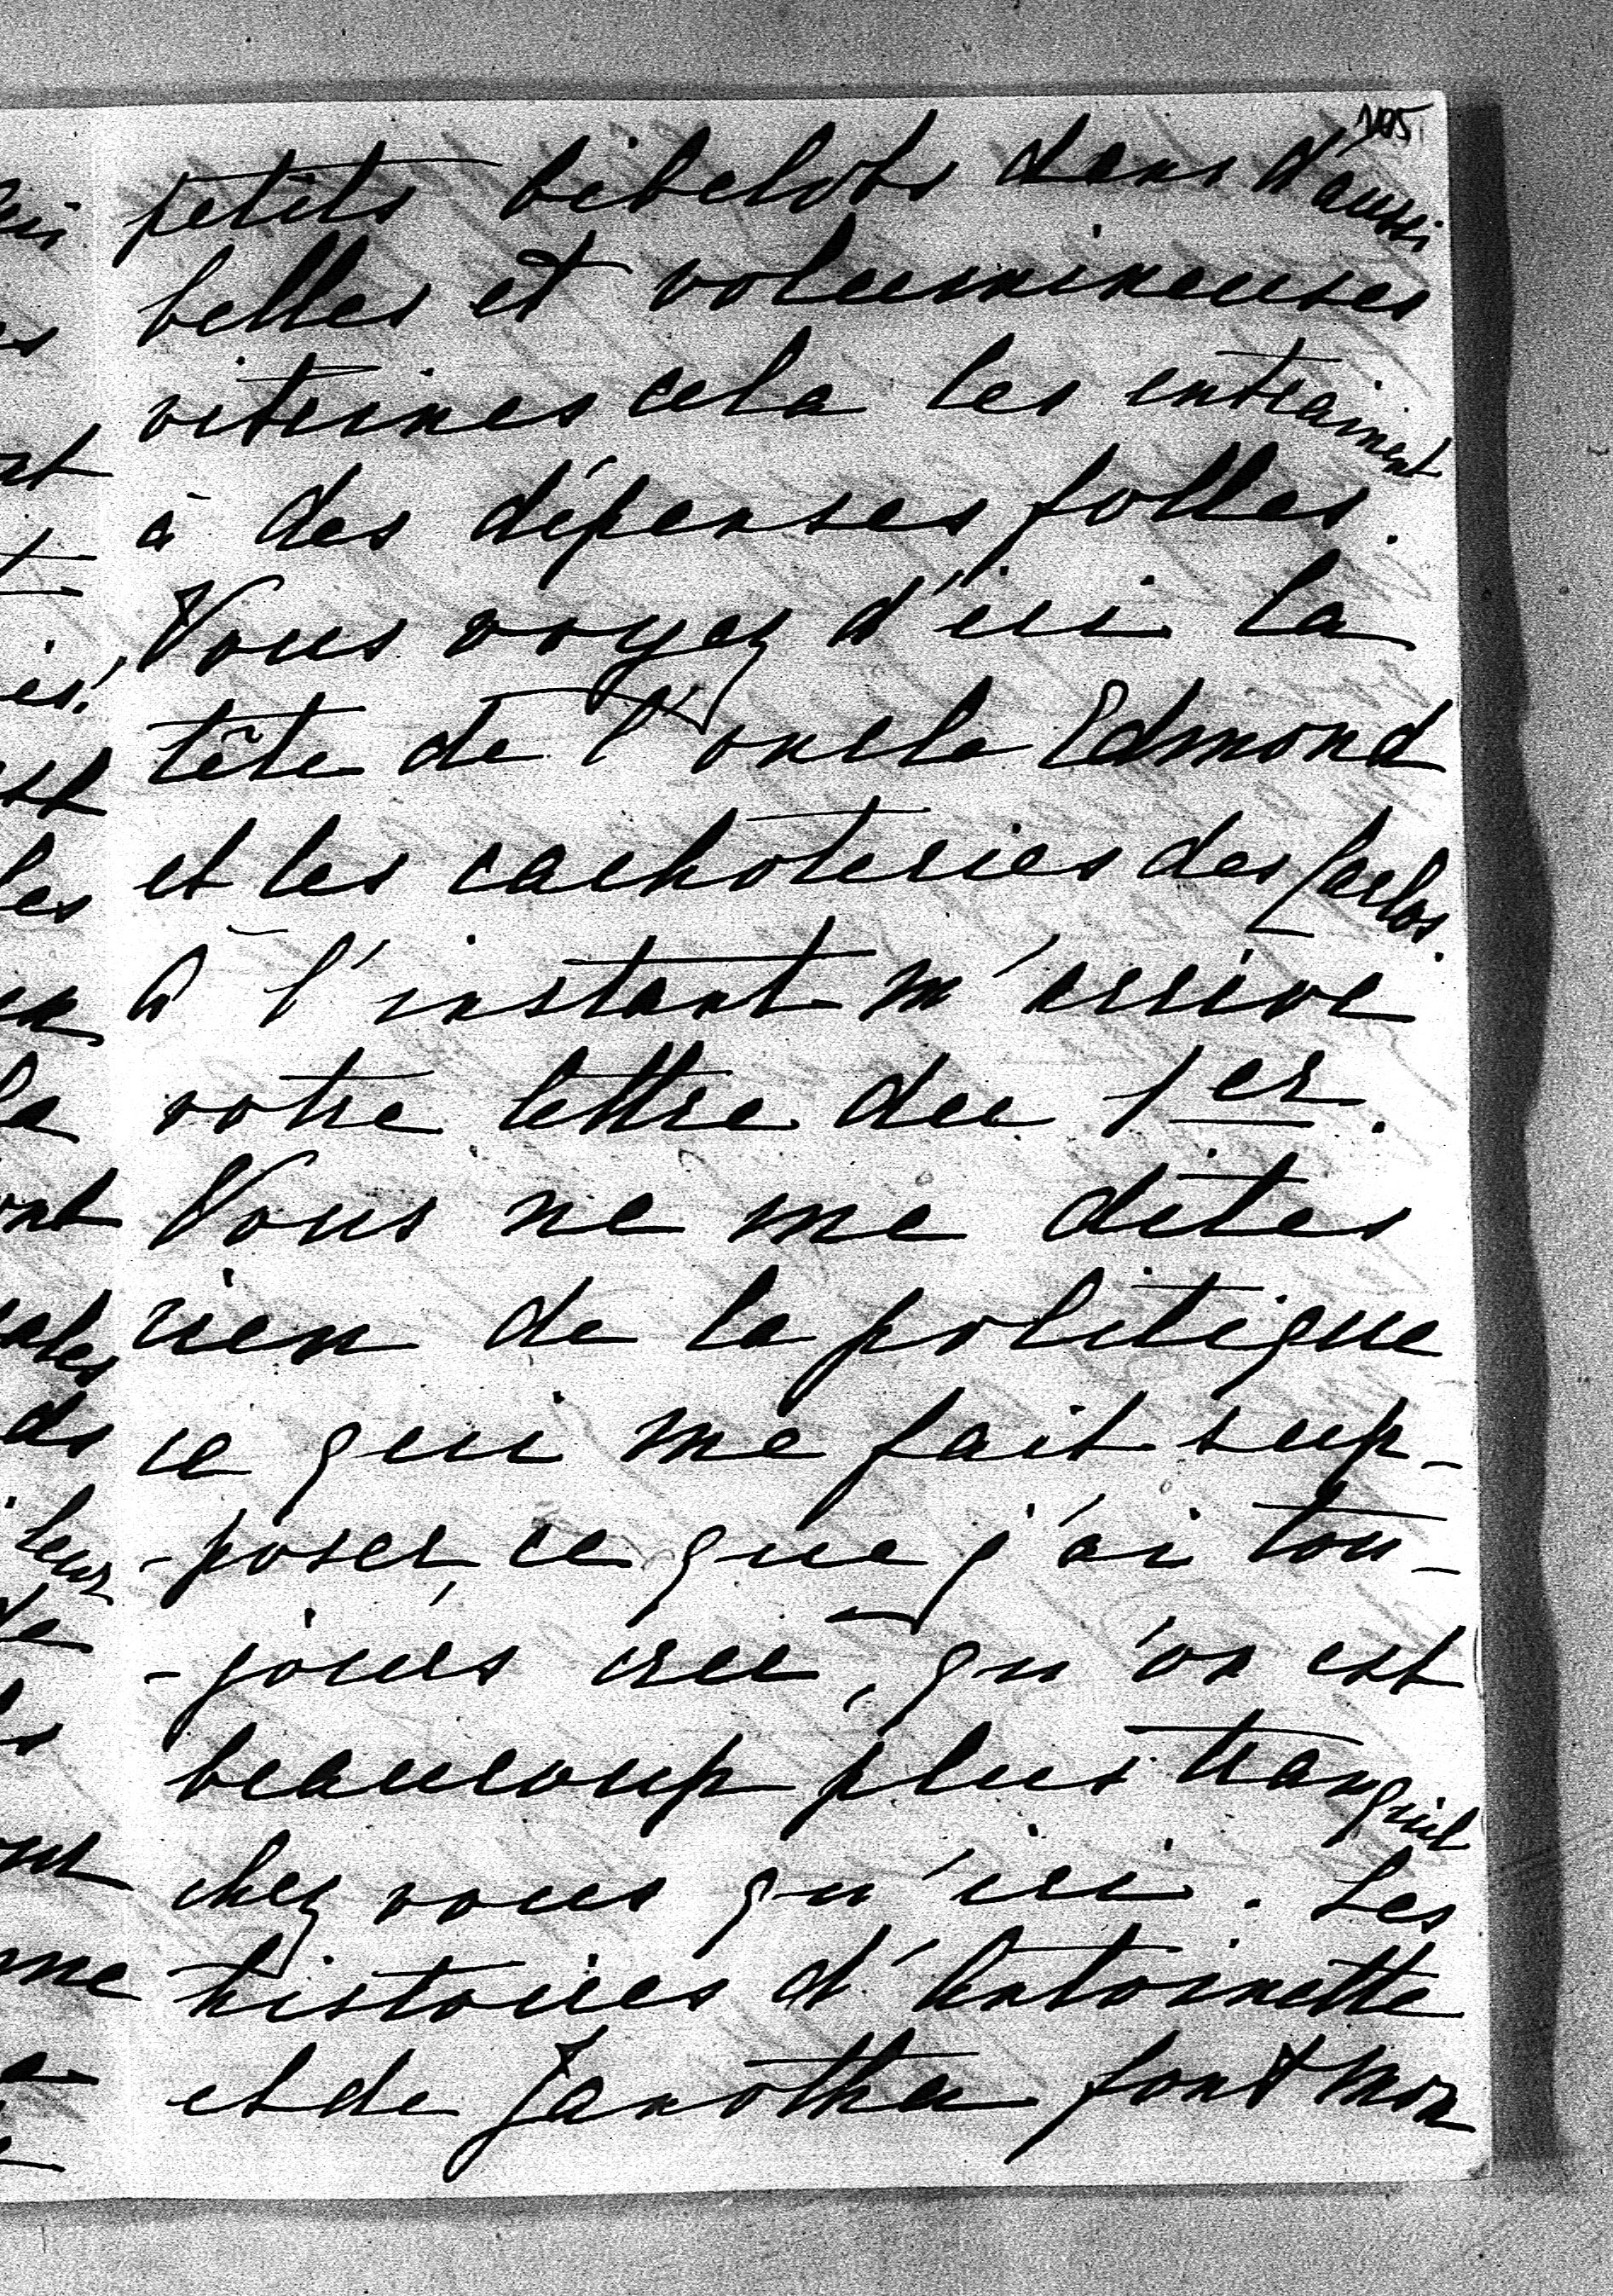 105
petits bibelots dans d'aussi
belles et volumineuses
vitrines cela les entrainent
à des dépenses folles.
Vous voyez d'ici la
tête de l'oncle Edmond
et les cachoteries des Carlos.
À l'instant m'arrive
votre lettre du 1er.
Vous ne me dites
rien de la politique
ce qui me fait sup-
-poser, ce que j'ai tou-
-jours cru, qu'on est
beaucoup plus tranquil
chez vous qu'ici. Les
histoires d'Antoinette
et de Janotha font mon